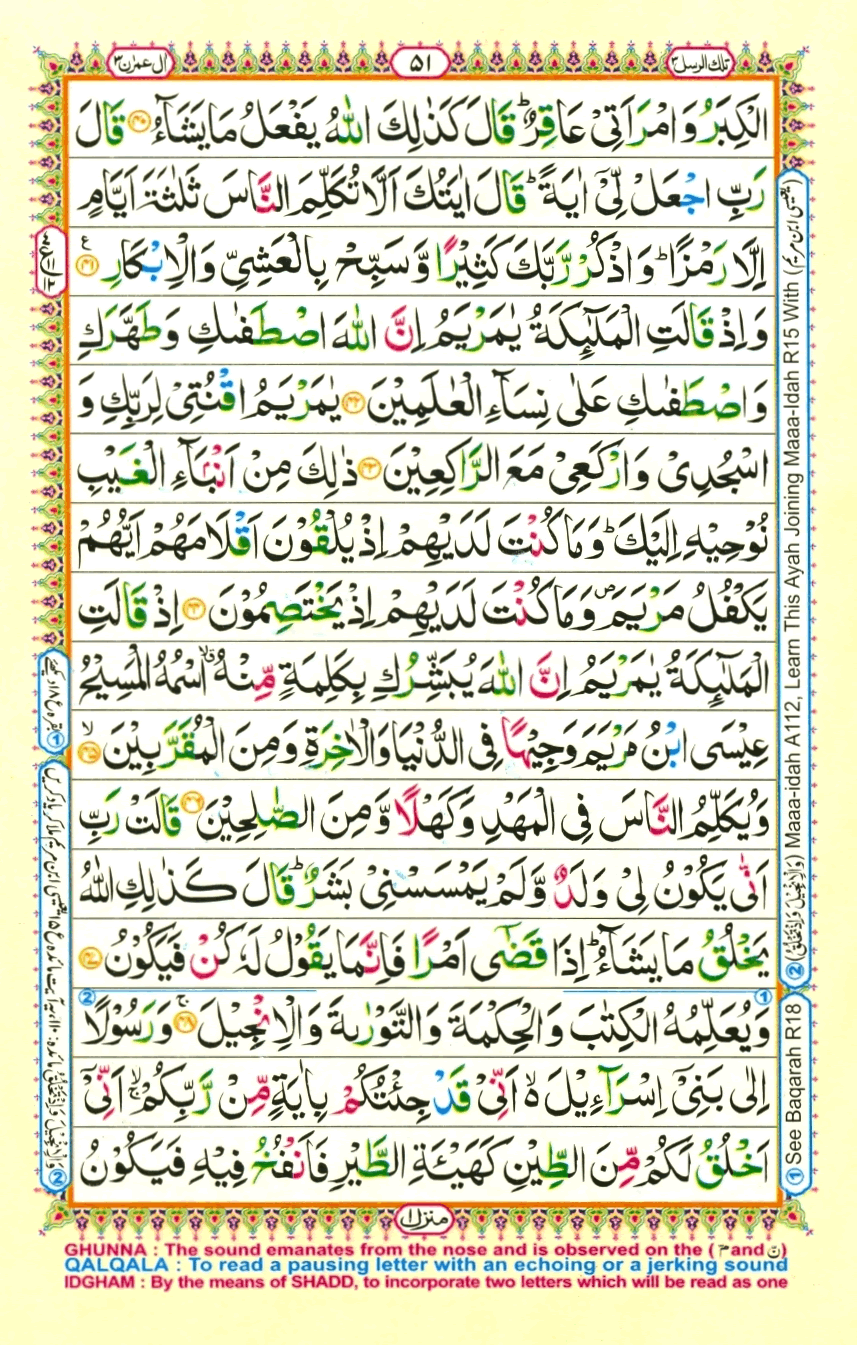 تلك الرسل ٣
٥١
ال عمرٰن ٣
الْكِبَرُ وَامْرَاَتِیْ عَاقِرٌ ؕ قَالَ كَذٰلِكَ اللّٰهُ یَفْعَلُ مَا یَشَآءُ ﴿۴۰﴾ قَالَ
رَبِّ اجْعَلْ لِّیْۤ اٰیَةً ؕ قَالَ اٰیَتُكَ اَلَّا تُكَلِّمَ النَّاسَ ثَلٰثَةَ اَیَّامٍ
اِلَّا رَمْزًا ؕ وَاذْكُرْ رَّبَّكَ كَثِیْرًا وَّسَبِّحْ بِالْعَشِیِّ وَالْاِبْكَارِ ﴿۴۱﴾ ع
وَاِذْ قَالَتِ الْمَلٰٓئِكَةُ یٰمَرْیَمُ اِنَّ اللّٰهَ اصْطَفٰىكِ وَطَهَّرَكِ
وَاصْطَفٰىكِ عَلٰی نِسَآءِ الْعٰلَمِیْنَ ﴿۴۲﴾ یٰمَرْیَمُ اقْنُتِیْ لِرَبِّكِ وَ
اسْجُدِیْ وَارْكَعِیْ مَعَ الرّٰكِعِیْنَ ﴿۴۳﴾ ذٰلِكَ مِنْ اَنْۢبَآءِ الْغَیْبِ
نُوْحِیْهِ اِلَیْكَ ؕ وَمَا كُنْتَ لَدَیْهِمْ اِذْ یُلْقُوْنَ اَقْلَامَهُمْ اَیُّهُمْ
یَكْفُلُ مَرْیَمَ ۪ وَمَا كُنْتَ لَدَیْهِمْ اِذْ یَخْتَصِمُوْنَ ﴿۴۴﴾ اِذْ قَالَتِ
الْمَلٰٓئِكَةُ یٰمَرْیَمُ اِنَّ اللّٰهَ یُبَشِّرُكِ بِكَلِمَةٍ مِّنْهُ ۖۗ اسْمُهُ الْمَسِیْحُ
عِیْسَی ابْنُ مَرْیَمَ وَجِیْهًا فِی الدُّنْیَا وَالْاٰخِرَةِ وَمِنَ الْمُقَرَّبِیْنَ ﴿۴۵﴾ ۙ
وَیُكَلِّمُ النَّاسَ فِی الْمَهْدِ وَكَهْلًا وَّمِنَ الصّٰلِحِیْنَ ﴿۴۶﴾ قَالَتْ رَبِّ
اَنّٰی یَكُوْنُ لِیْ وَلَدٌ وَّلَمْ یَمْسَسْنِیْ بَشَرٌ ؕ قَالَ كَذٰلِكِ اللّٰهُ
یَخْلُقُ مَا یَشَآءُ ؕ اِذَا قَضٰۤی اَمْرًا فَاِنَّمَا یَقُوْلُ لَهٗ كُنْ فَیَكُوْنُ ﴿۴۷﴾
وَیُعَلِّمُهُ الْكِتٰبَ وَالْحِكْمَةَ وَالتَّوْرٰىةَ وَالْاِنْجِیْلَ ﴿۴۸﴾ ۚ وَرَسُوْلًا
اِلٰی بَنِیْۤ اِسْرَآءِیْلَ ۙ۬ اَنِّیْ قَدْ جِئْتُكُمْ بِاٰیَةٍ مِّنْ رَّبِّكُمْ ۙ اَنِّیْۤ
اَخْلُقُ لَكُمْ مِّنَ الطِّیْنِ كَهَیْـَٔةِ الطَّیْرِ فَاَنْفُخُ فِیْهِ فَیَكُوْنُ
منزل ١
① See Baqarah R18
② (وَالْاِنْجِیْلَ وَاِذْ تَخْلُقُ) Maaa-idah A112, Learn This Ayah Joining Maaa-Idah R15 With (یٰعِیْسَی ابْنَ مَرْیَمَ)
GHUNNA : The sound emanates from the nose and is observed on the ( مّ and نّ )
QALQALA : To read a pausing letter with an echoing or a jerking sound
IDGHAM : By the means of SHADD, to incorporate two letters which will be read as one